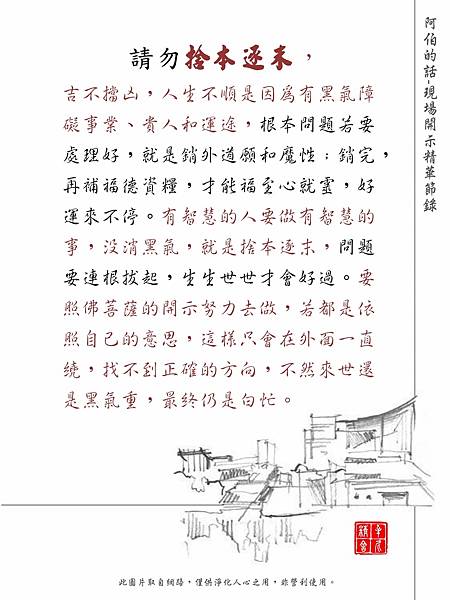 阿伯的話-現場開示精華節錄
請勿捨本逐末，
吉不擋凶，人生不順是因為有黑氣障
礙事業、貴人和運途，根本問題若要
處理好，就是銷外道願和魔性；銷完，
再補福德資糧，才能福至心就靈，好
運來不停。有智慧的人要做有智慧的
事，沒消黑氣，就是捨本逐末，問題
要連根拔起，生生世世才會好過。要
照佛菩薩的開示努力去做，若都是依
照自己的意思，這樣只會在外面一直
繞，找不到正確的方向，不然來世還
是黑氣重，最終仍是白忙。
此圖片取自網路，僅供淨化人心之用，非營利使用。